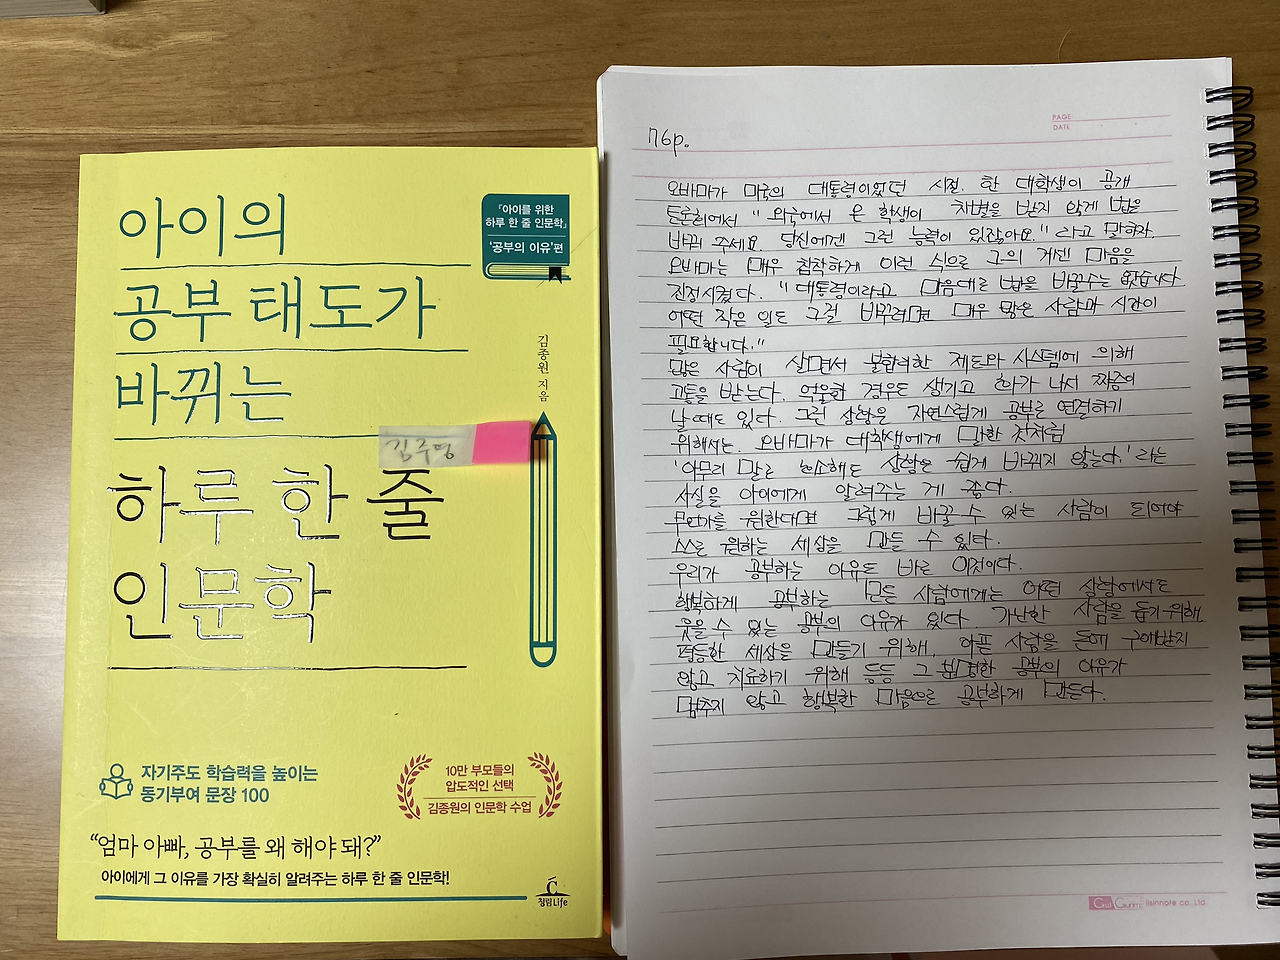 아이의
공부 태도가
바뀌는
하루 한 줄
인문학
『아이를 위한
하루 한 줄 인문학』
'공부의 이유'편
김종원 지음
김주영
자기주도 학습력을 높이는
동기부여 문장 100
10만 부모들의
압도적인 선택
김종원의 인문학 수업
"엄마 아빠, 공부를 왜 해야 돼?"
아이에게 그 이유를 가장 확실히 알려주는 하루 한 줄 인문학!
청림Life
PAGE
DATE
76p.
오바마가 미국의 대통령이었던 시절. 한 대학생이 공개
토론회에서 "외국에서 온 학생이 차별을 받지 않게 법을
바꿔 주세요. 당신에겐 그런 능력이 있잖아요." 라고 말하자,
오바마는 매우 침착하게 이런 식으로 그의 거센 마음을
진정시켰다. "대통령이라고 마음대로 법을 바꿀수는 없습니다.
어떤 작은 일도 그걸 바꾸려면 매우 많은 사람과 시간이
필요합니다."
많은 사람이 살면서 불합리한 제도와 시스템에 의해
고통을 받는다. 억울한 경우도 생기고 화가 나서 짜증이
날 때도 있다. 그런 상황을 자연스럽게 공부로 연결하기
위해서는. 오바마가 대학생에게 말한 것처럼
'아무리 말로 호소해도 상황은 쉽게 바뀌지 않는다.' 라는
사실을 아이에게 알려주는 게 좋다.
무언가를 원한다면 그렇게 바꿀 수 있는 사람이 되어야
스스로 원하는 세상을 만들 수 있다.
우리가 공부하는 이유도 바로 이것이다.
행복하게 공부하는 모든 사람에게는 어떤 상황에서도
웃을 수 있는 공부의 이유가 있다. 가난한 사람을 돕기 위해.
평등한 세상을 만들기 위해, 아픈 사람을 돈에 구애받지
않고 치료하기 위해 등등 그 분명한 공부의 이유가
멈추지 않고 행복한 마음으로 공부하게 만든다.
lisinnote co.,Ltd.